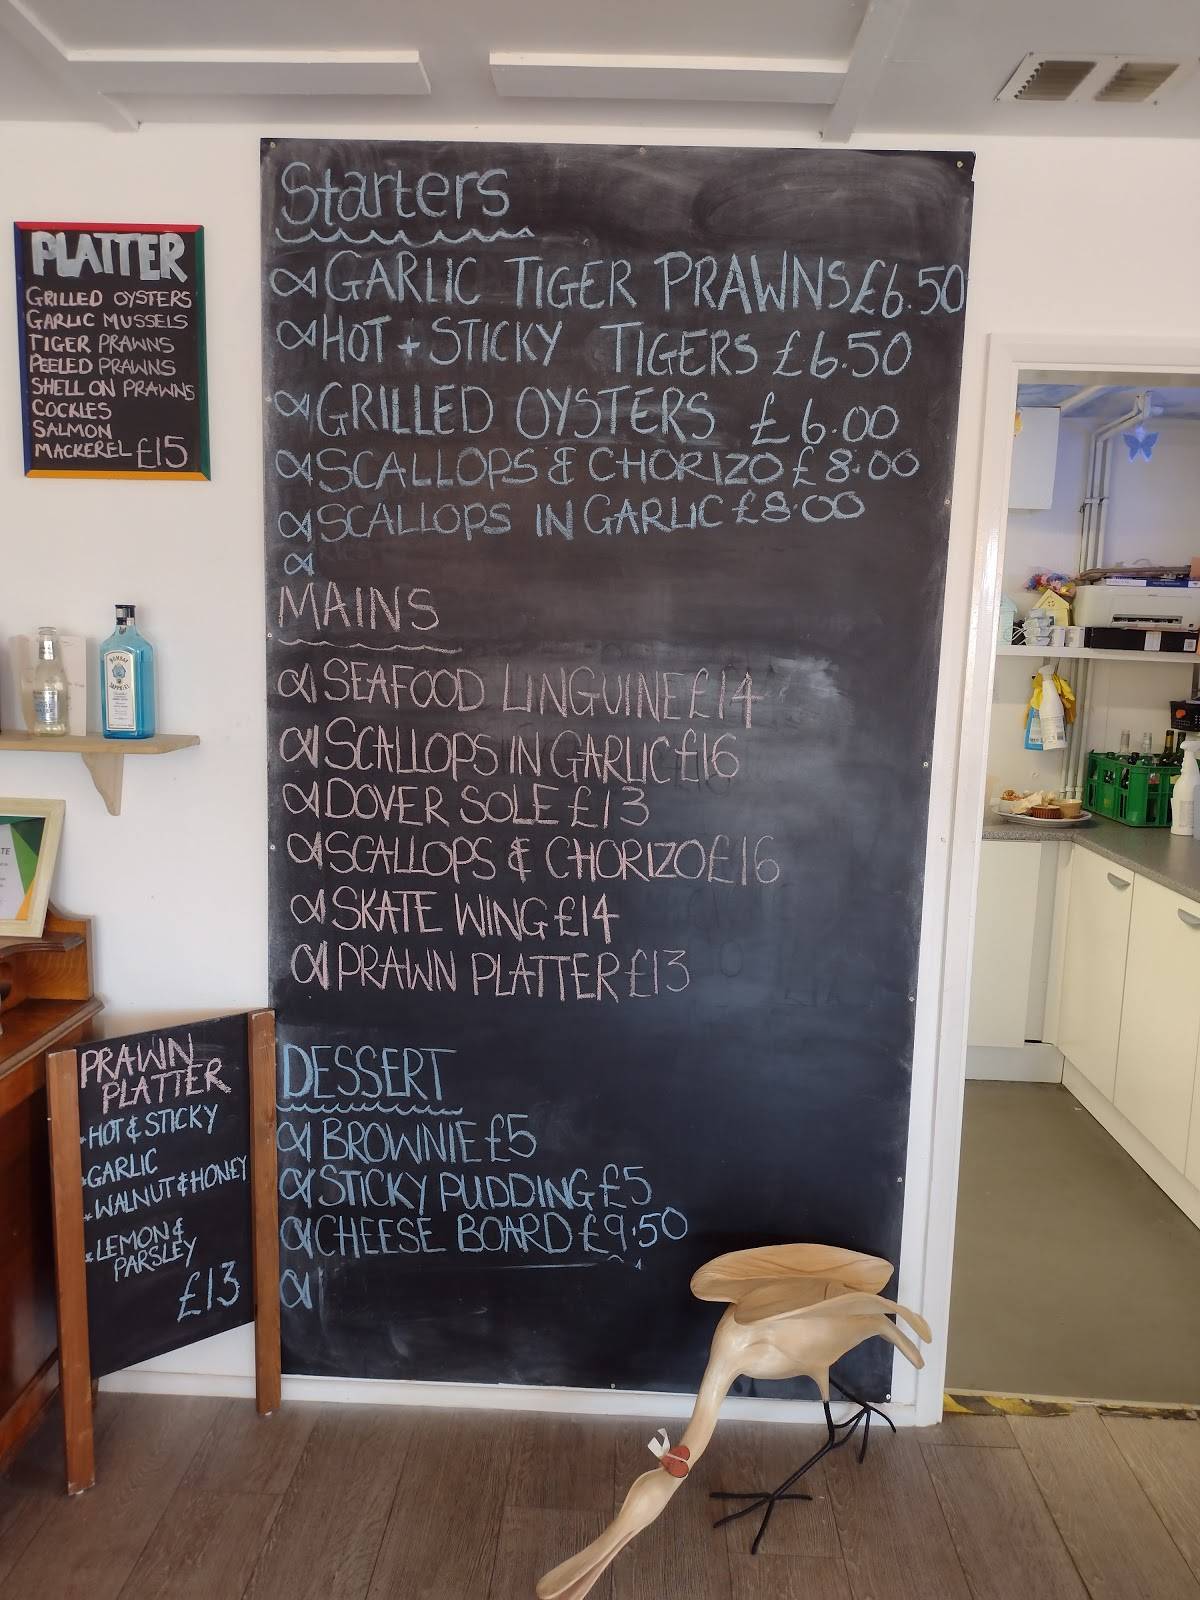 PLATTER
GRILLED OYSTERS
GARLIC MUSSELS
TIGER PRAWNS
PEELED PRAWNS
SHELL ON PRAWNS
COCKLES
SALMON
MACKEREL £15
Starters
GARLIC TIGER PRAWNS £6.50
HOT + STICKY TIGERS £6.50
GRILLED OYSTERS £6.00
SCALLOPS & CHORIZO £8.00
SCALLOPS IN GARLIC £8.00
MAINS
SEAFOOD LINGUINE £14
SCALLOPS IN GARLIC £16
DOVER SOLE £13
SCALLOPS & CHORIZO £16
SKATE WING £14
PRAWN PLATTER £13
DESSERT
BROWNIE £5
STICKY PUDDING £5
CHEESE BOARD £9.50
PRAWN
PLATTER
HOT & STICKY
GARLIC
WALNUT & HONEY
LEMON &
PARSLEY
£13
BOMBAY
SAPPHIRE